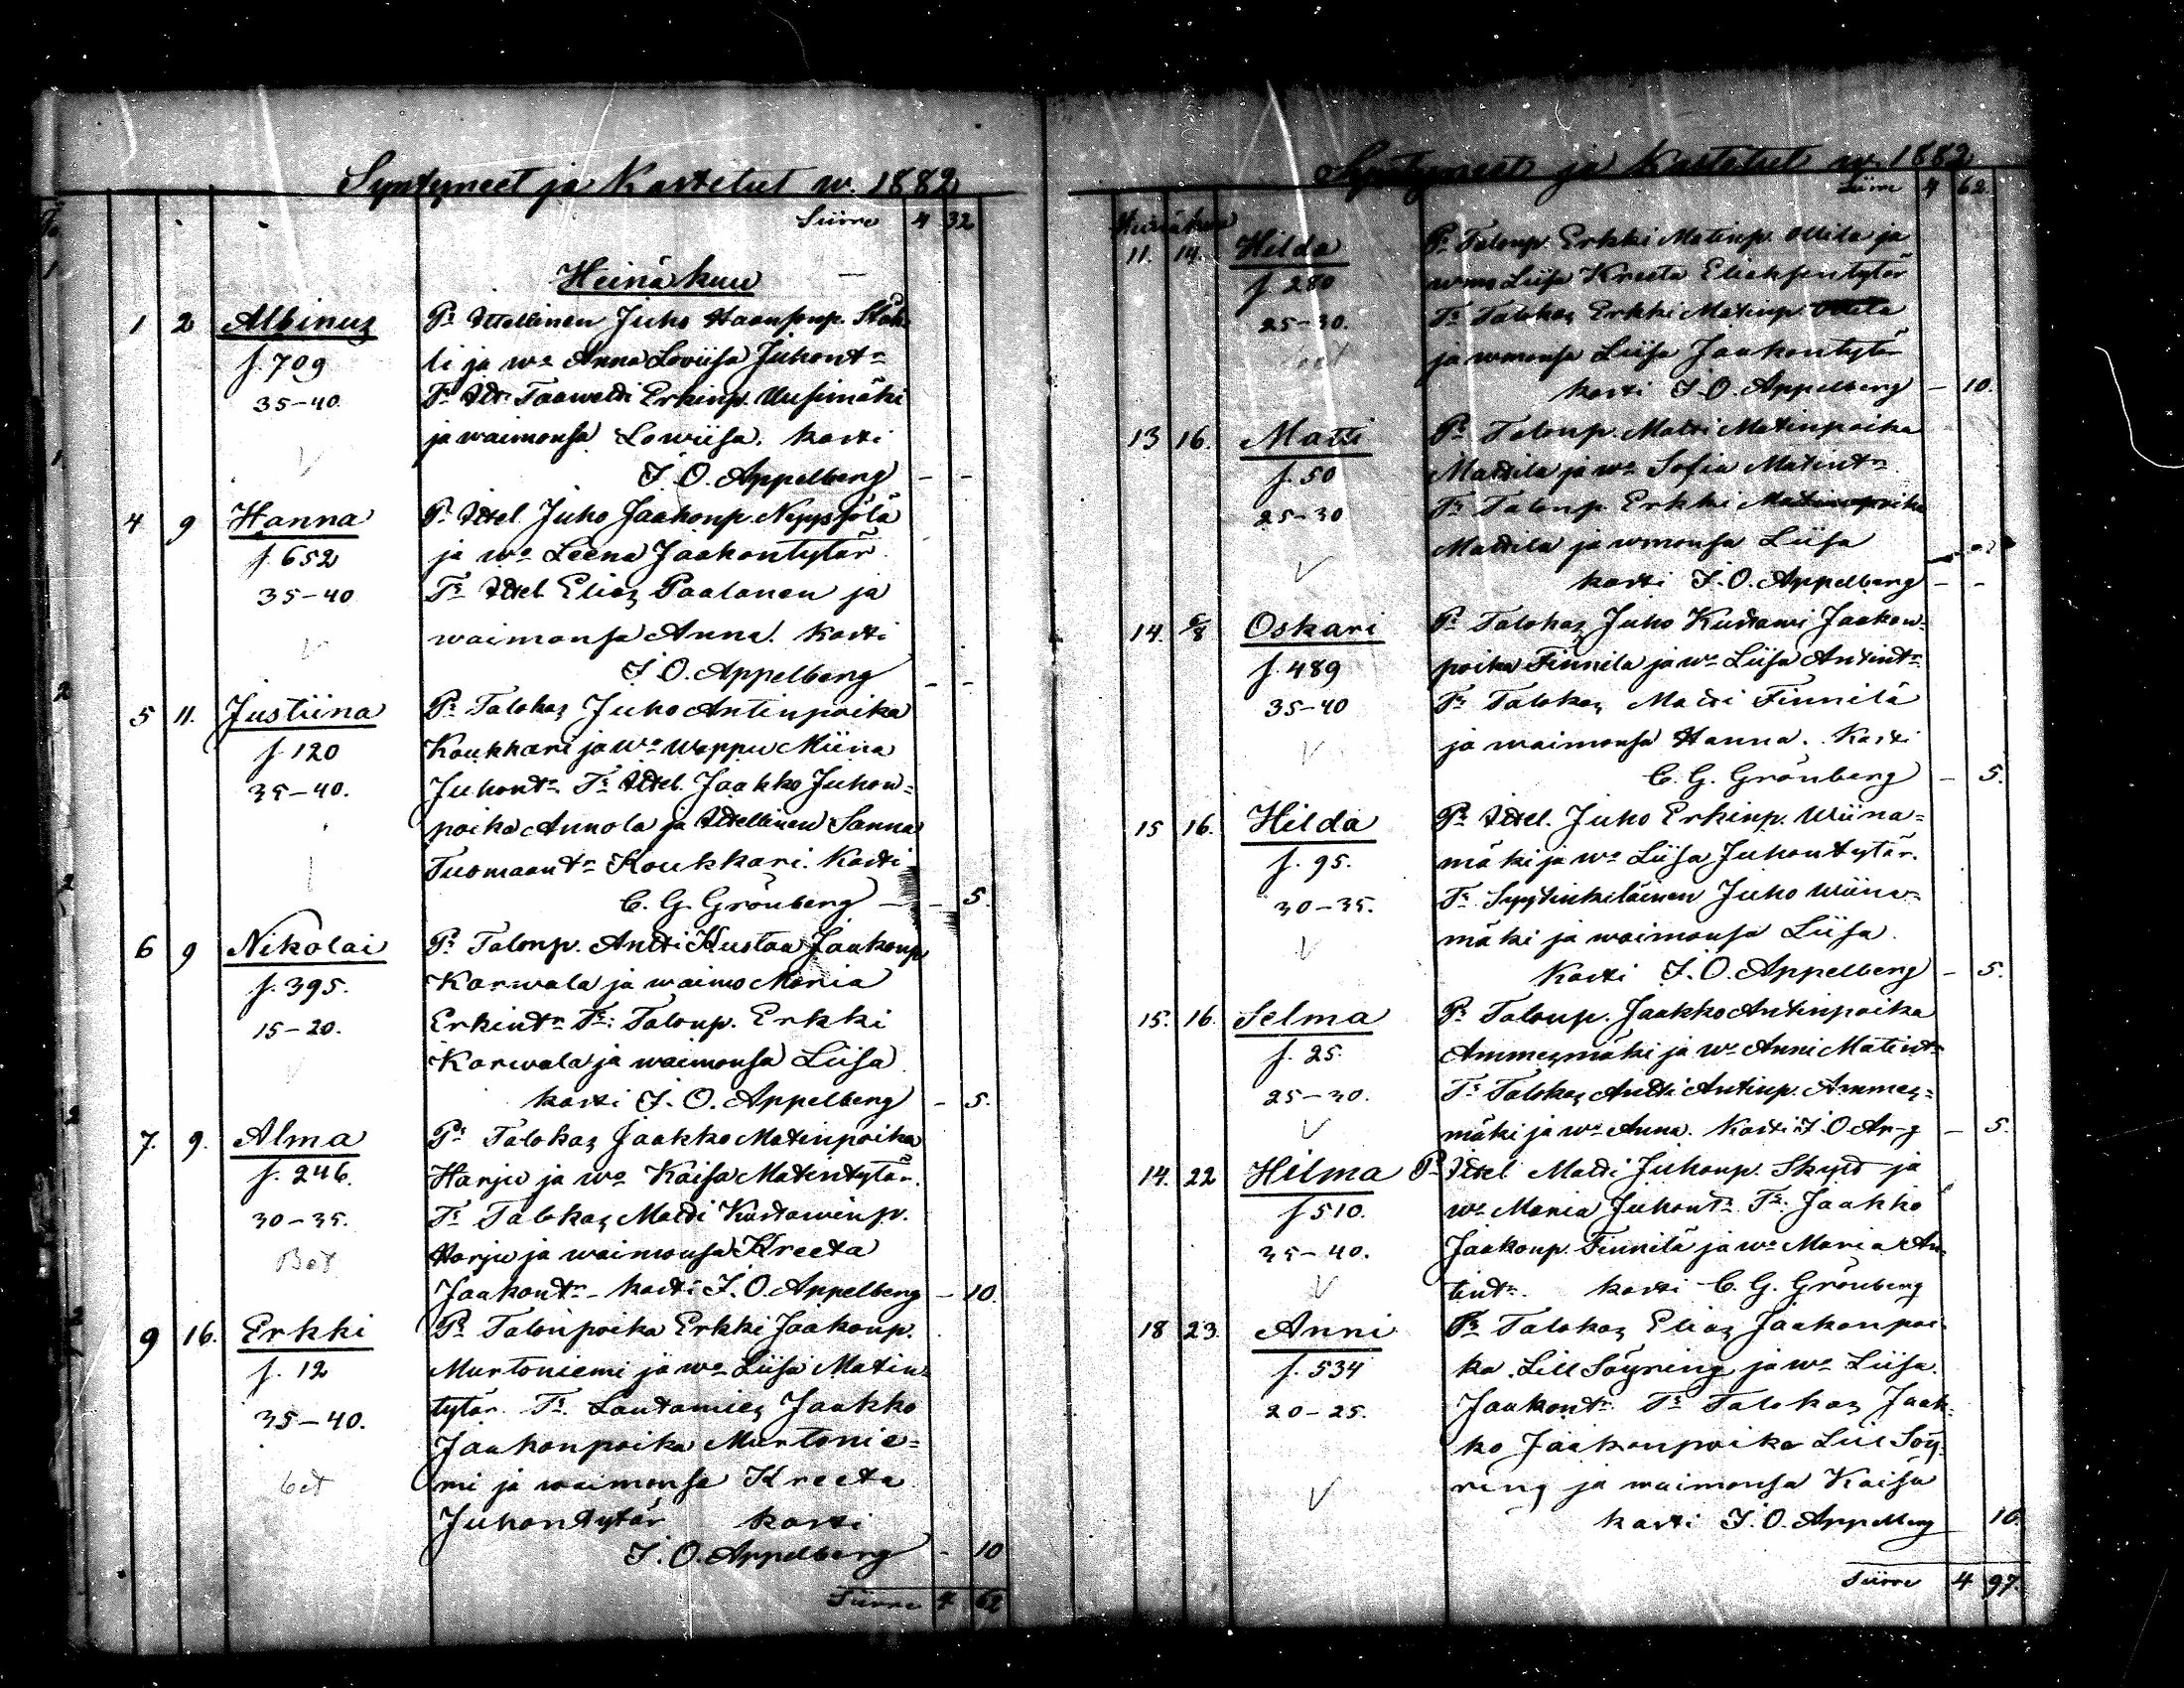 Syntyneet ja Kastetut w. 1882
Siirre 4 32
Heinäkuu
1 2 Albinus Pr Itsellinen Juho Haanpp.
f. 709 li ja wo Anna Lowiisa Juhontr
35-40. Tr Its. Taawetti Erkinp. Uusimäki
ja waimonsa Lowiisa. kasti
J. O. Appelberg - -
4 9 Hanna Pr Itsel. Juho Jaakonp. Nyysjölä
f. 652 ja wo Leena Jaakontytär
35-40 Tr Itsel Elias Paalanen ja
waimonsa Anna. kasti
J. O. Appelberg - -
5 11. Justiina Pr Talokas Juho Antinpoika
f. 120 Koukkari ja wo Wappu Miina
35-40. Juhontr Tr Itsel. Jaakko Juhon=
poika Annola ja Itsellinen Sanna
Tuomaantr Koukkari. Kasti
C. G. Grönberg - 5.
6 9 Nikolai Pr Talonp. Antti Kustaa Jaakonp
f. 395. Karwala ja waimo Maria
15-20. Erkintr Tr: Talonp. Erkki
Karwala ja waimonsa Liisa
kasti J. O. Appelberg - 5.
7. 9. Alma Pr Talokas Jaakko Matinpoika
f. 246. Harju ja wo Kaisa Matintytär.
30-35. Tr Talokas Matti Kustawinp.
Bet Harju ja waimonsa Kreeta
Jaakontr - kasti J. O. Appelberg - 10.
9 16. Erkki Pr Talonpoika Erkki Jaakonp.
f. 12 Murtoniemi ja wo Liisa Matin=
35-40. tytär. Tr. Lautamies Jaakko
Jaakonpoika Murtonie=
bet mi ja waimonsa Kreeta
Juhontytär kasti
J. O. Appelberg - 10
Siirre 4 62
Syntyneet ja Kastetut w. 1882
Siirre 4 62.
Heinäkuu
11. 14. Hilda Pr Talonp. Erkki Matinp. Ollila ja
f. 280 wmo Liisa Kreeta Eliaksentytär
25-30. Tr Talokas Erkki Matinp. Ollila
bet ja wmonsa Liisa Jaakontytär
kasti J. O. Appelberg - 10.
13 16. Matti Pr Talonp. Matti Matinpoika
f. 50 Mattila ja wo Sofia Matintr
25-30 Tr Talonp. Erkki Matinpoika
Mattila ja wmonsa Liisa
kasti J. O. Appelberg - -
14. 6/8 Oskari Pr Talokas Juho Kustawi Jaakon=
f. 489 poika Finnilä ja wo Liisa Antintr
35-40 Tr Talokas Matti Finnilä
ja waimonsa Hanna. Kasti
C. G. Grönberg - 5.
15 16. Hilda Pr Itsel. Juho Erkinp. Wiina=
f. 95. mäki ja wo Liisa Juhontytär.
30-35. Tr Syytinkiläinen Juho Wiina=
mäki ja waimonsa Liisa.
Kasti J. O. Appelberg - 5.
15. 16. Selma Pr Talonp. Jaakko Antinpoika
f. 25. Ammesmäki ja wo Anni Matintr
25-30. Tr Talokas Antti Antinp. Ammes=
mäki ja wo Anna. Kasti J. O. Ap-g - 5.
14. 22 Hilma Pr Itsel Matti Juhonp. Skyts ja
f 510. wo Maria Juhontr Tr: Jaakko
35-40. Jaakonp. Finnilä ja wo Maria An=
tintr. kasti C. G. Grönberg
18 23. Anni Pr Talokas Elias Jaakonpoi=
f. 534 ka Lill Söyring ja wo Liisa
20-25. Jaakontr Tr Talokas Jaak=
ko Jaakonpoika Lill Söy=
ring ja waimonsa Kaisa
kasti J. O. Appelberg 10.
Siirre 4 97.